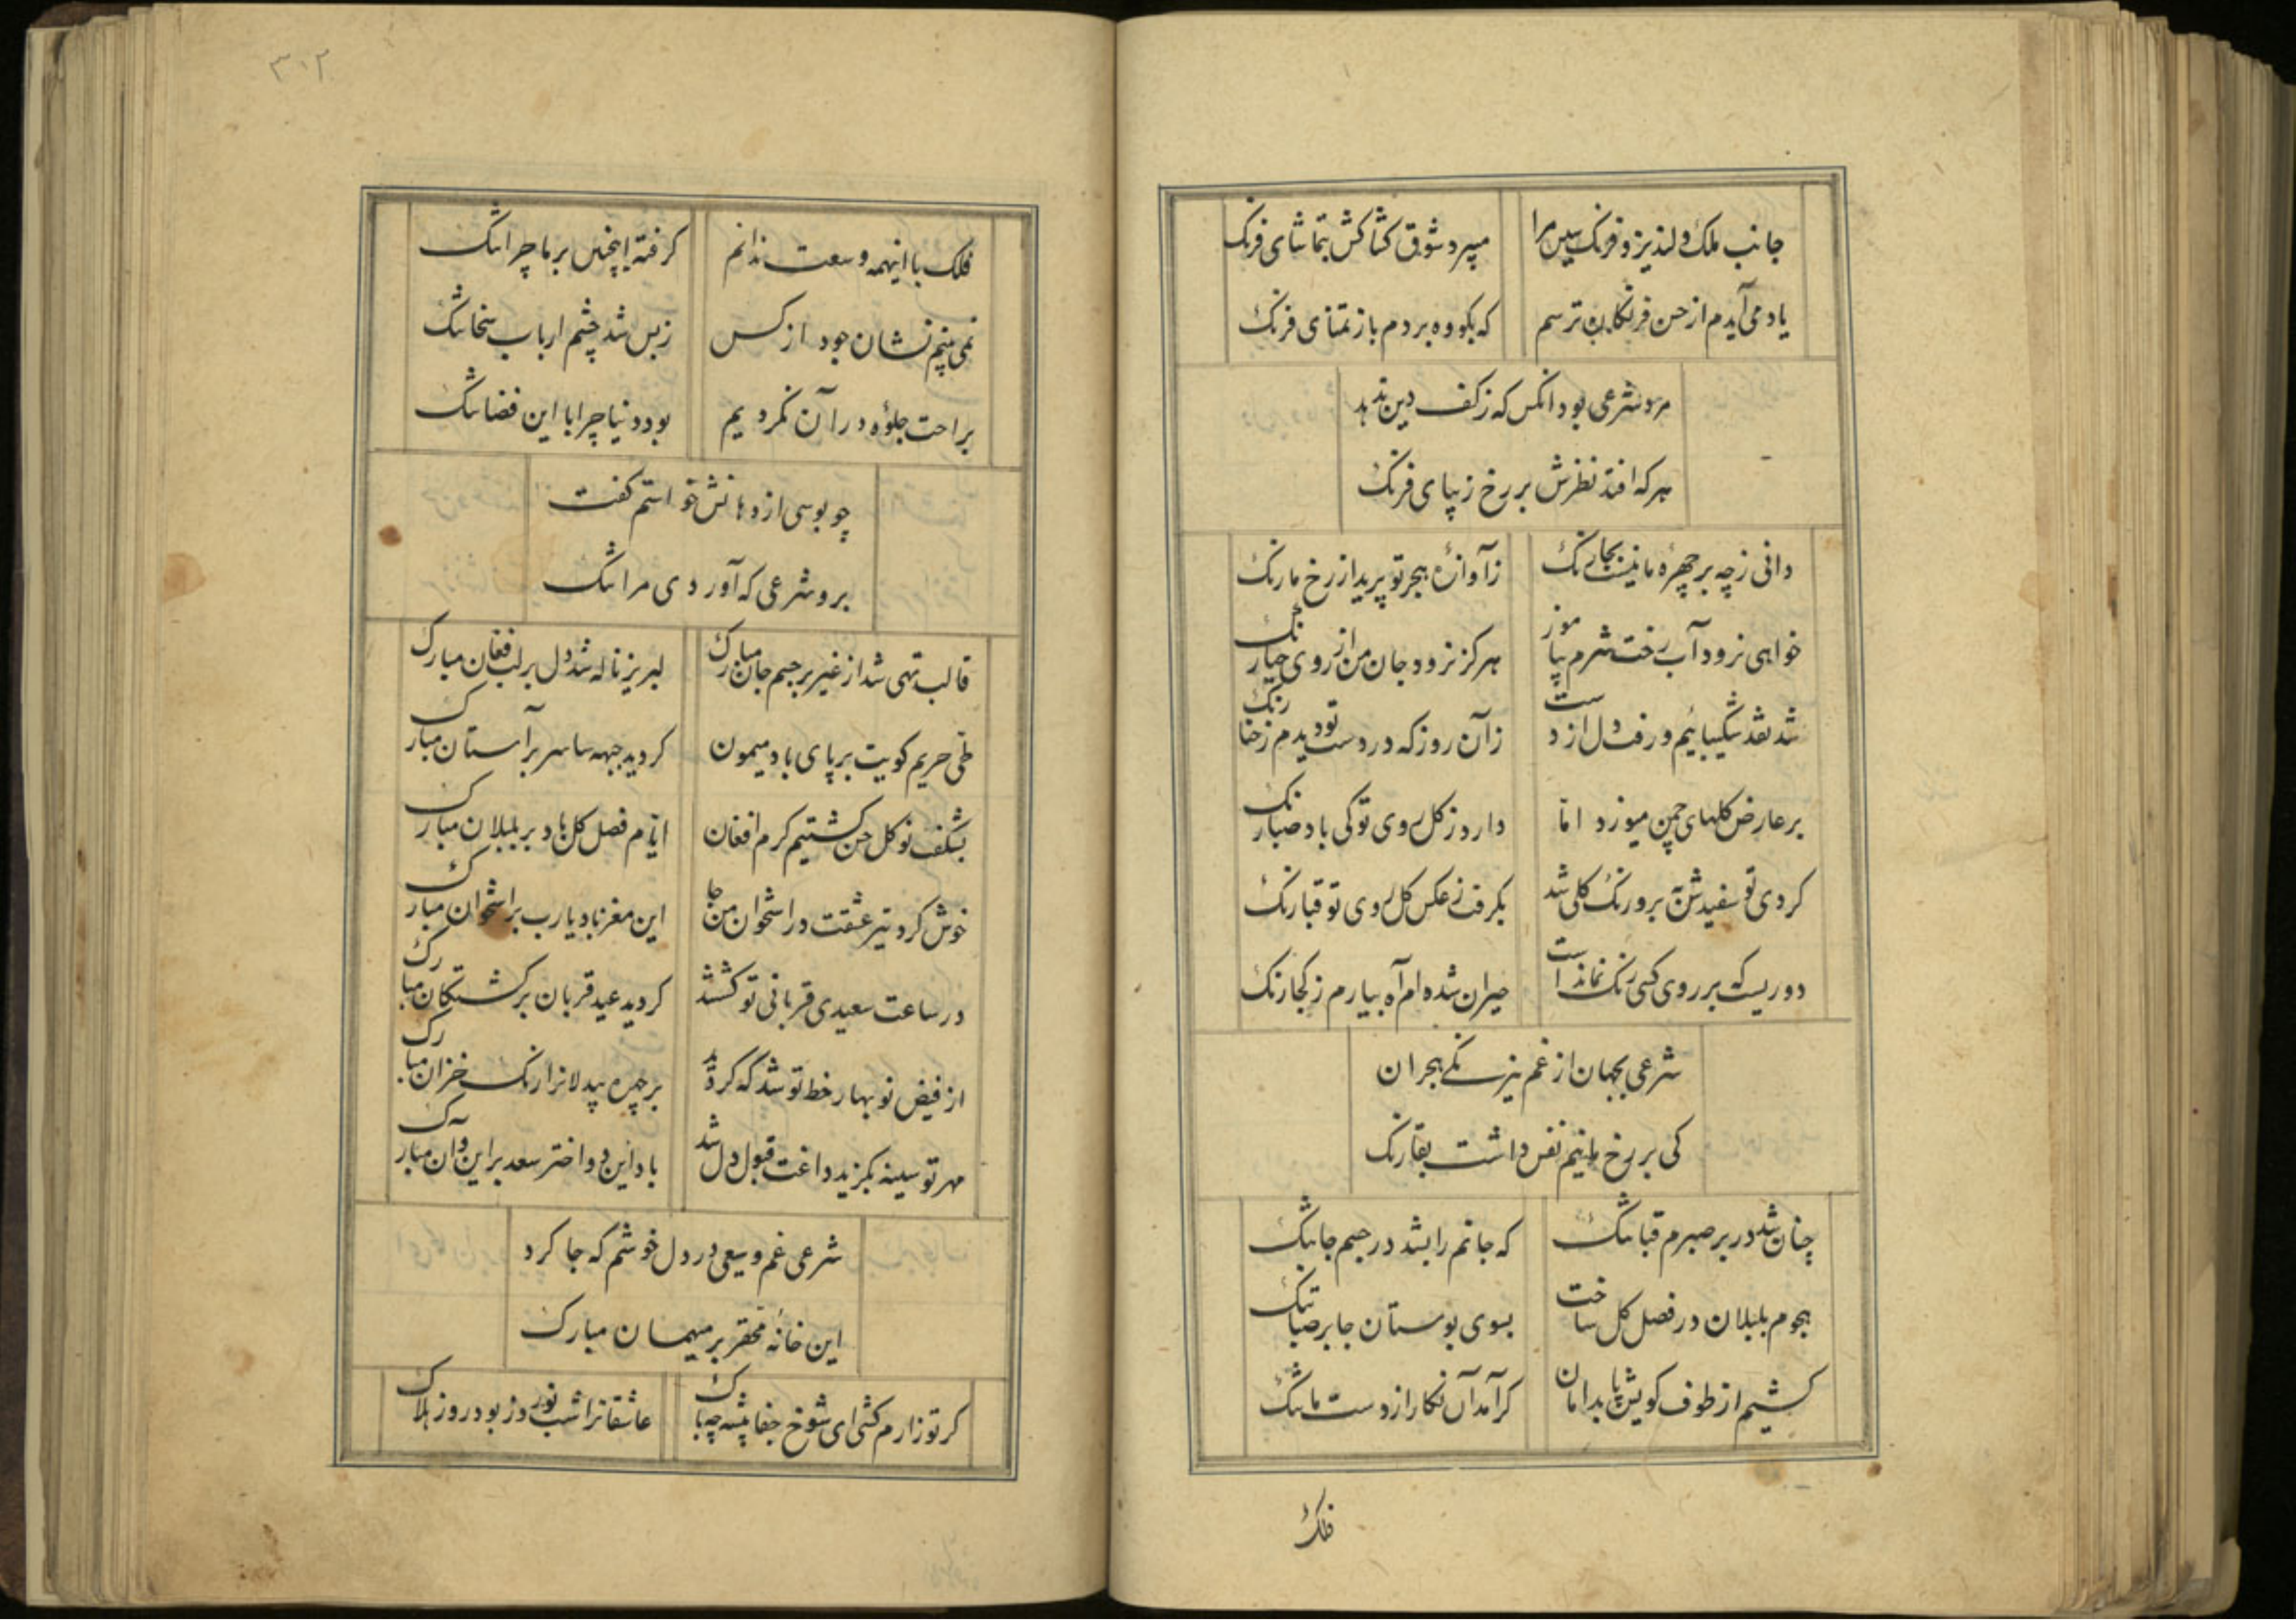 جانب ملک دلپذیر و فرنک سین مرا میبرد شوق کشاکش بتماشای فرنک
یاد می آیدم از حسن فرنکان ترسم که بکو وه بردم باز تمنای فرنک
مرد شرعی بود انکس که ز کف دین ندهد
هر که افتد نظرش بر رخ زیبای فرنک
دانی ز چه بر چهرۀ ما نیست بجا رنک زآوازۀ هجر تو پرید از رخ ما رنک
خواهی نرود آب رخت شرم بیاموز هرکز نرود جان من از روی حیا رنک
شد نقد شکیبائیم و رفت دل از دست زآن روز که در دست تو دیدم ز حنا رنک
بر عارض کلهای چمن میوزد اما دارد ز کل روی تو کی باد صبا رنک
کردی تو سفید و رنک کلی شد بکرفت ز عکس کل روی تو قبا رنک
دوریست که بر روی کسی رنک نماند است حیران شده ام آه بیارم ز کجا رنک
شرعی بجهان از غم نیرنکی هجران
کی بر رخ مانیم نفس داشت بقا رنک
چنان شد در بر صبرم قبا تنک که جانم را بشد در جسم جا تنک
هجوم بلبلان در فصل کل ساخت بسوی بوستان جا بر صبا تنک
کشیم از طوف کویش پا بدامان کر آمد آن نکار از دست ما تنک
فلک
۳۰۲
فلک با اینهمه وسعت ندانم کرفته اینچنین بر ما چرا تنک
نمی بینم نشان جود از کس ز بس شد چشم ارباب سخا تنک
براحت جلوۀ در آن نکردیم بود دنیا چرا با این فضا تنک
چو بوسی از دهانش خواستم کفت
برو شرعی که آوردی مرا تنک
قالب تهی شد از غیر بر جسم جان مبارک لبریز ناله شد دل بر لب فغان مبارک
طی حریم کویت بر پای باد میمون کردید جبهه سا سر بر آستان مبارک
بشکفت نو کل حسن کشتیم کرم افغان ایام فصل کل باد بر بلبلان مبارک
خوش کرد تیر عشقت در استخوان من جا این مغز باد یارب بر استخوان مبارک
در ساعت سعیدی قربانی تو کشتند کردید عید قربان بر کشتکان مبارک
از فیض نوبهار خط تو شد که کردد بر چهره بیدلانرا رنک خزان مبارک
مهر تو سینه بکزید داغت قبول دل شد باد این دو اختر سعد بر این و آن مبارک
شرعی غم وسیعی در دل خوشم که جا کرد
این خانۀ محقر بر میهمان مبارک
کر تو زارم کشی ای شوخ جفا پیشه چه باک عاشقانرا شب نوروز بود روز هلاک